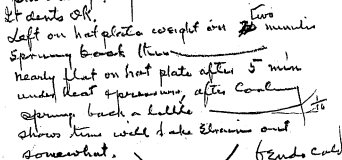 It dents OK.
Left on hot plate weight on two minutes
Sprung back thus
nearly flat on hot plate after 5 min
under heat & pressure, after cooling
sprung back a little 1/16
shows time will take strains out
somewhat. (bends cold